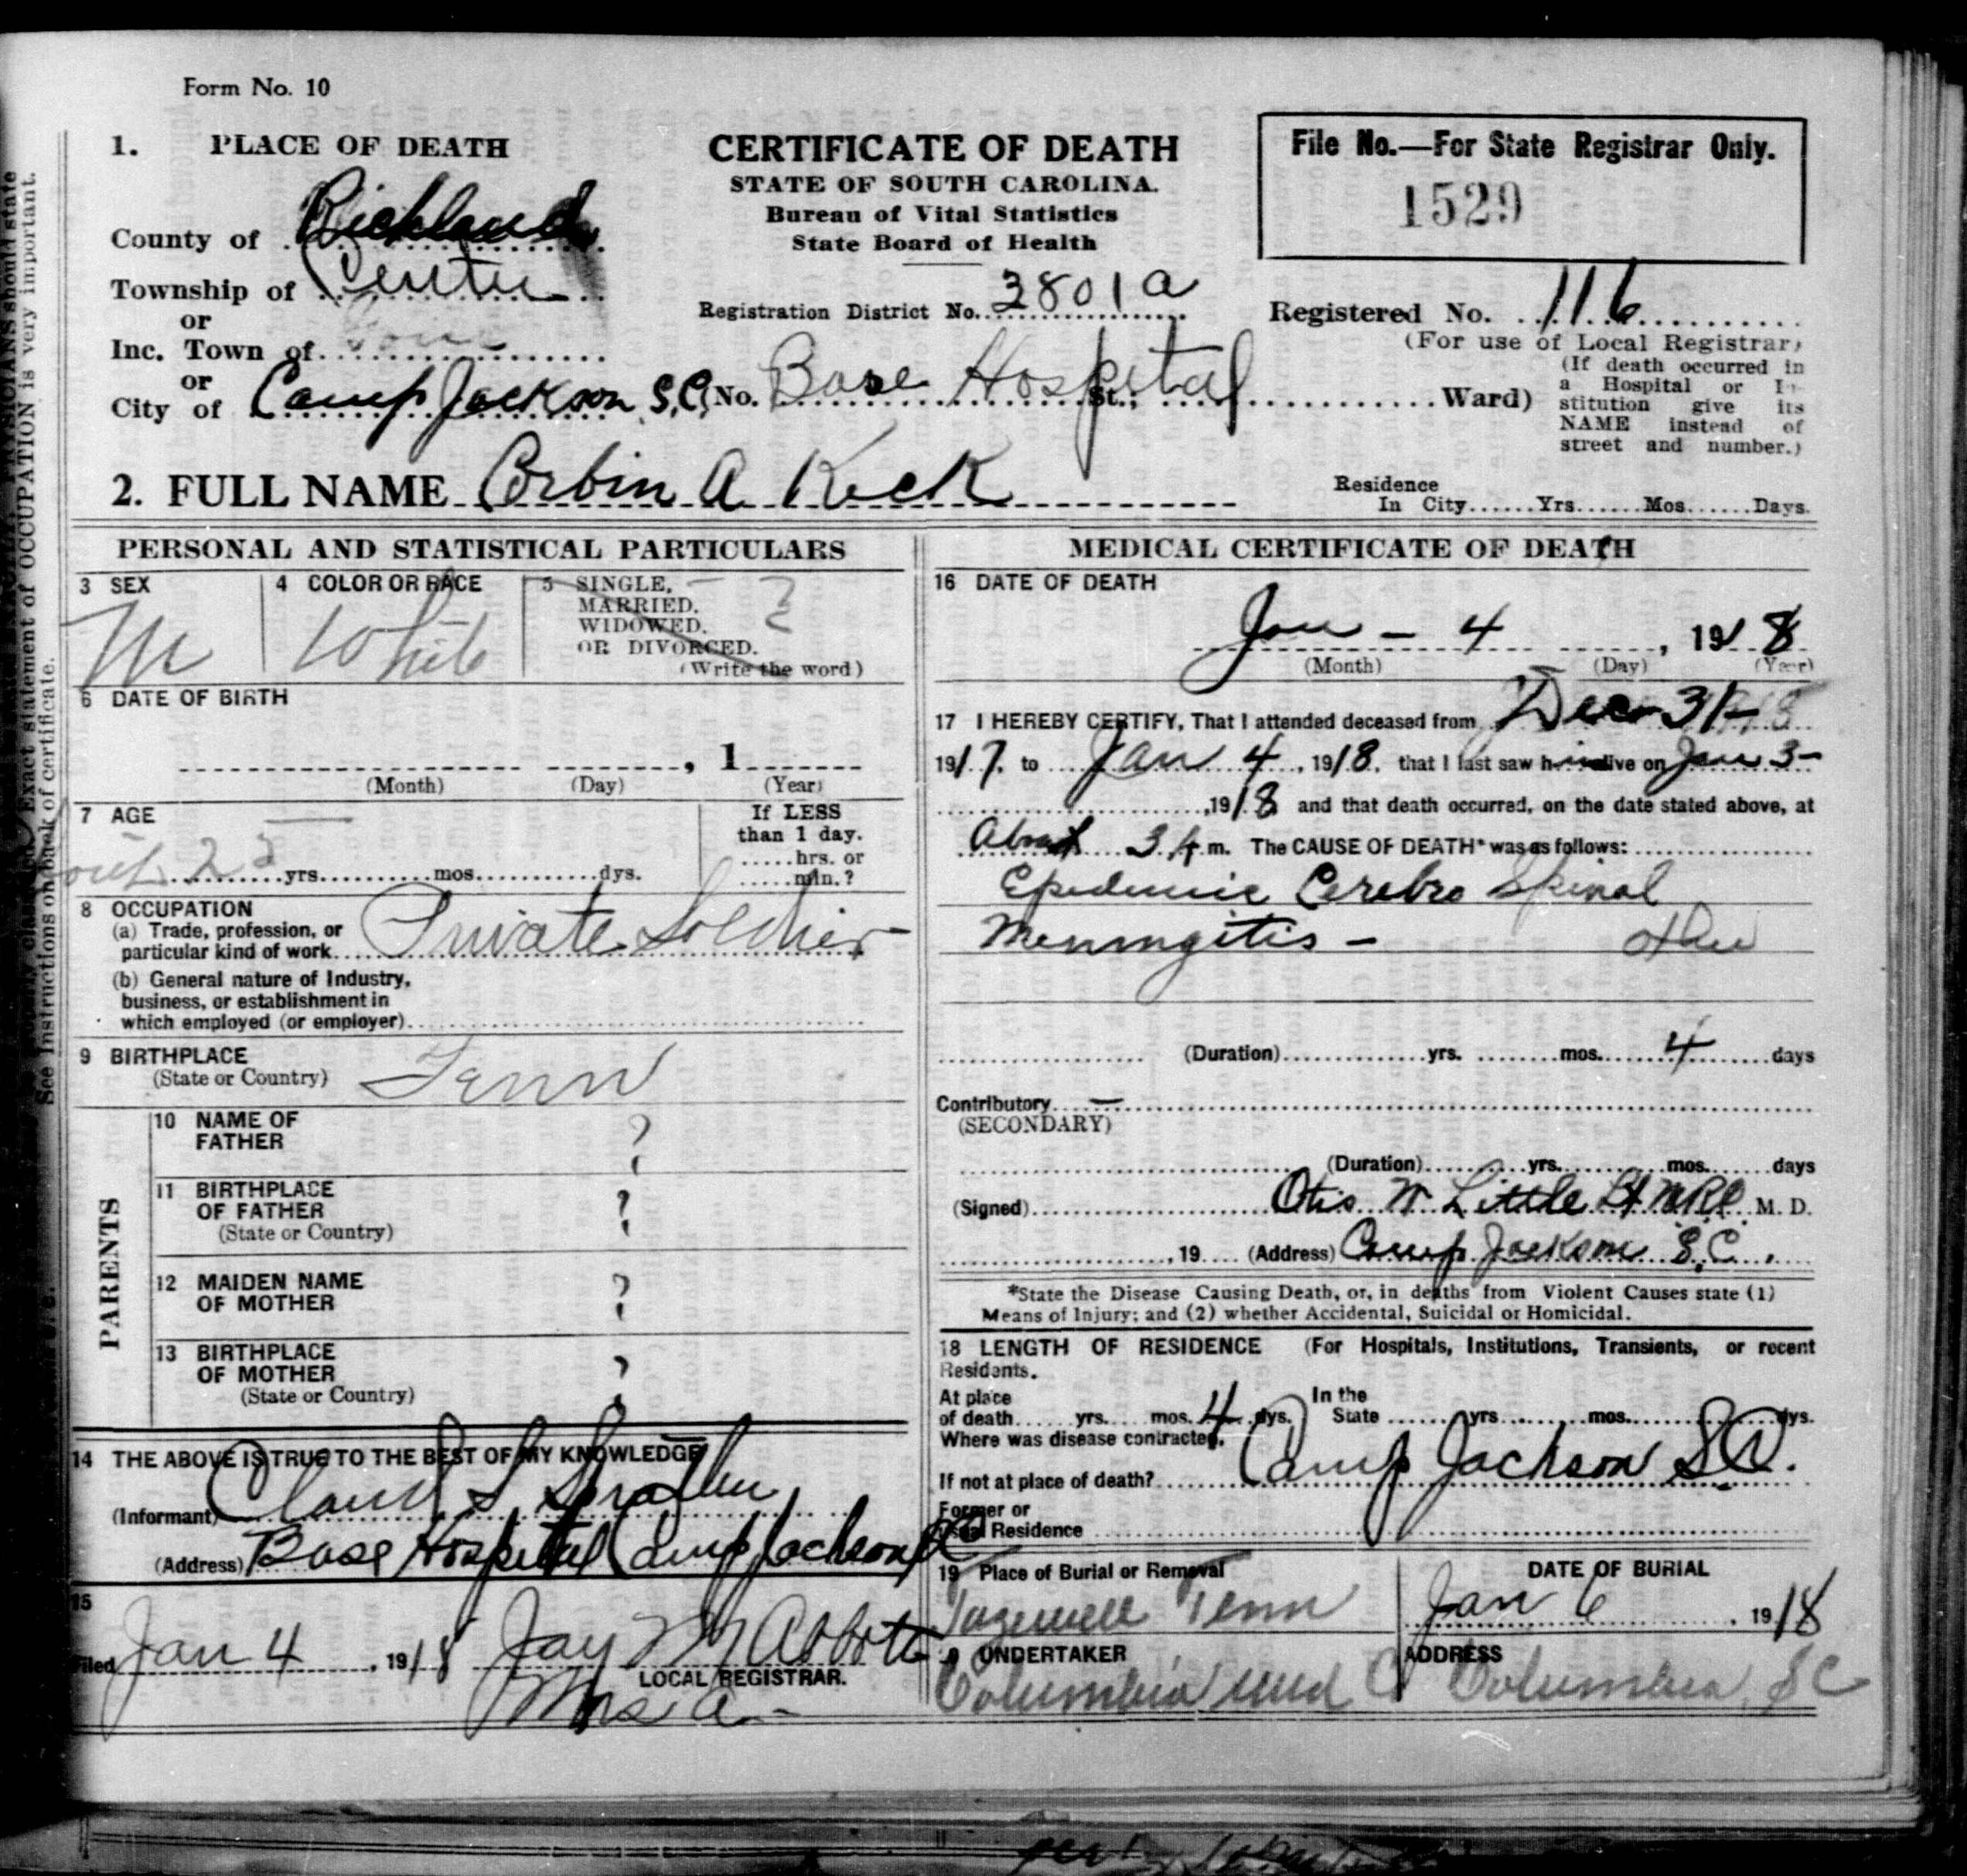 Form No. 10
1. PLACE OF DEATH
County of Richland
Township of Center
or
Inc. Town of
or
City of Camp Jackson S.C. No. Base Hospital St.; Ward)
CERTIFICATE OF DEATH
STATE OF SOUTH CAROLINA.
Bureau of Vital Statistics
State Board of Health
Registration District No. 3801a
File No.—For State Registrar Only.
1529
Registered No. 116
(For use of Local Registrar)
(If death occurred in
a Hospital or In-
stitution give its
NAME instead of
street and number.)
2. FULL NAME Corbin A Keck
Residence
In City Yrs. Mos. Days.
PERSONAL AND STATISTICAL PARTICULARS
3 SEX
M
4 COLOR OR RACE
White
5 SINGLE,
MARRIED.
WIDOWED.
OR DIVORCED.
(Write the word)
?
6 DATE OF BIRTH
, 1
(Month) (Day) (Year)
7 AGE
23 yrs. mos. dys.
If LESS
than 1 day.
hrs. or
min.?
8 OCCUPATION
(a) Trade, profession, or
particular kind of work Private Soldier
(b) General nature of Industry,
business, or establishment in
which employed (or employer)
9 BIRTHPLACE
(State or Country) Tenn
PARENTS
10 NAME OF
FATHER ?
11 BIRTHPLACE
OF FATHER ?
(State or Country)
12 MAIDEN NAME
OF MOTHER ?
13 BIRTHPLACE
OF MOTHER ?
(State or Country)
14 THE ABOVE IS TRUE TO THE BEST OF MY KNOWLEDGE
(Informant) Claud S
(Address) Base Hospital Camp Jackson SC
15
Filed Jan 4, 1918 Jay M Abbott
LOCAL REGISTRAR.
MEDICAL CERTIFICATE OF DEATH
16 DATE OF DEATH
Jan - 4, 1918
(Month) (Day) (Year)
17 I HEREBY CERTIFY, That I attended deceased from Dec 31-
1917, to Jan 4, 1918, that I last saw him alive on Jan 3-
, 1918 and that death occurred, on the date stated above, at
About 3 A m. The CAUSE OF DEATH* was as follows:
Epidemic Cerebro Spinal
Meningitis - other
(Duration) yrs. mos. 4 days
Contributory —
(SECONDARY)
(Duration) yrs. mos. days
(Signed) Otis W. Little Lt MRC M. D.
, 19 (Address) Camp Jackson S.C.
*State the Disease Causing Death, or, in deaths from Violent Causes state (1)
Means of Injury; and (2) whether Accidental, Suicidal or Homicidal.
18 LENGTH OF RESIDENCE (For Hospitals, Institutions, Transients, or recent
Residents.
At place In the
of death yrs. mos. 4 dys. State yrs. mos. dys.
Where was disease contracted,
If not at place of death? Camp Jackson SC.
Former or
Usual Residence
19 Place of Burial or Removal
Tazewell Tenn
DATE OF BURIAL
Jan 6, 1918
UNDERTAKER
Columbia Und C
ADDRESS
Columbia, SC
Exact statement of OCCUPATION is very important.
See Instructions on back of certificate.